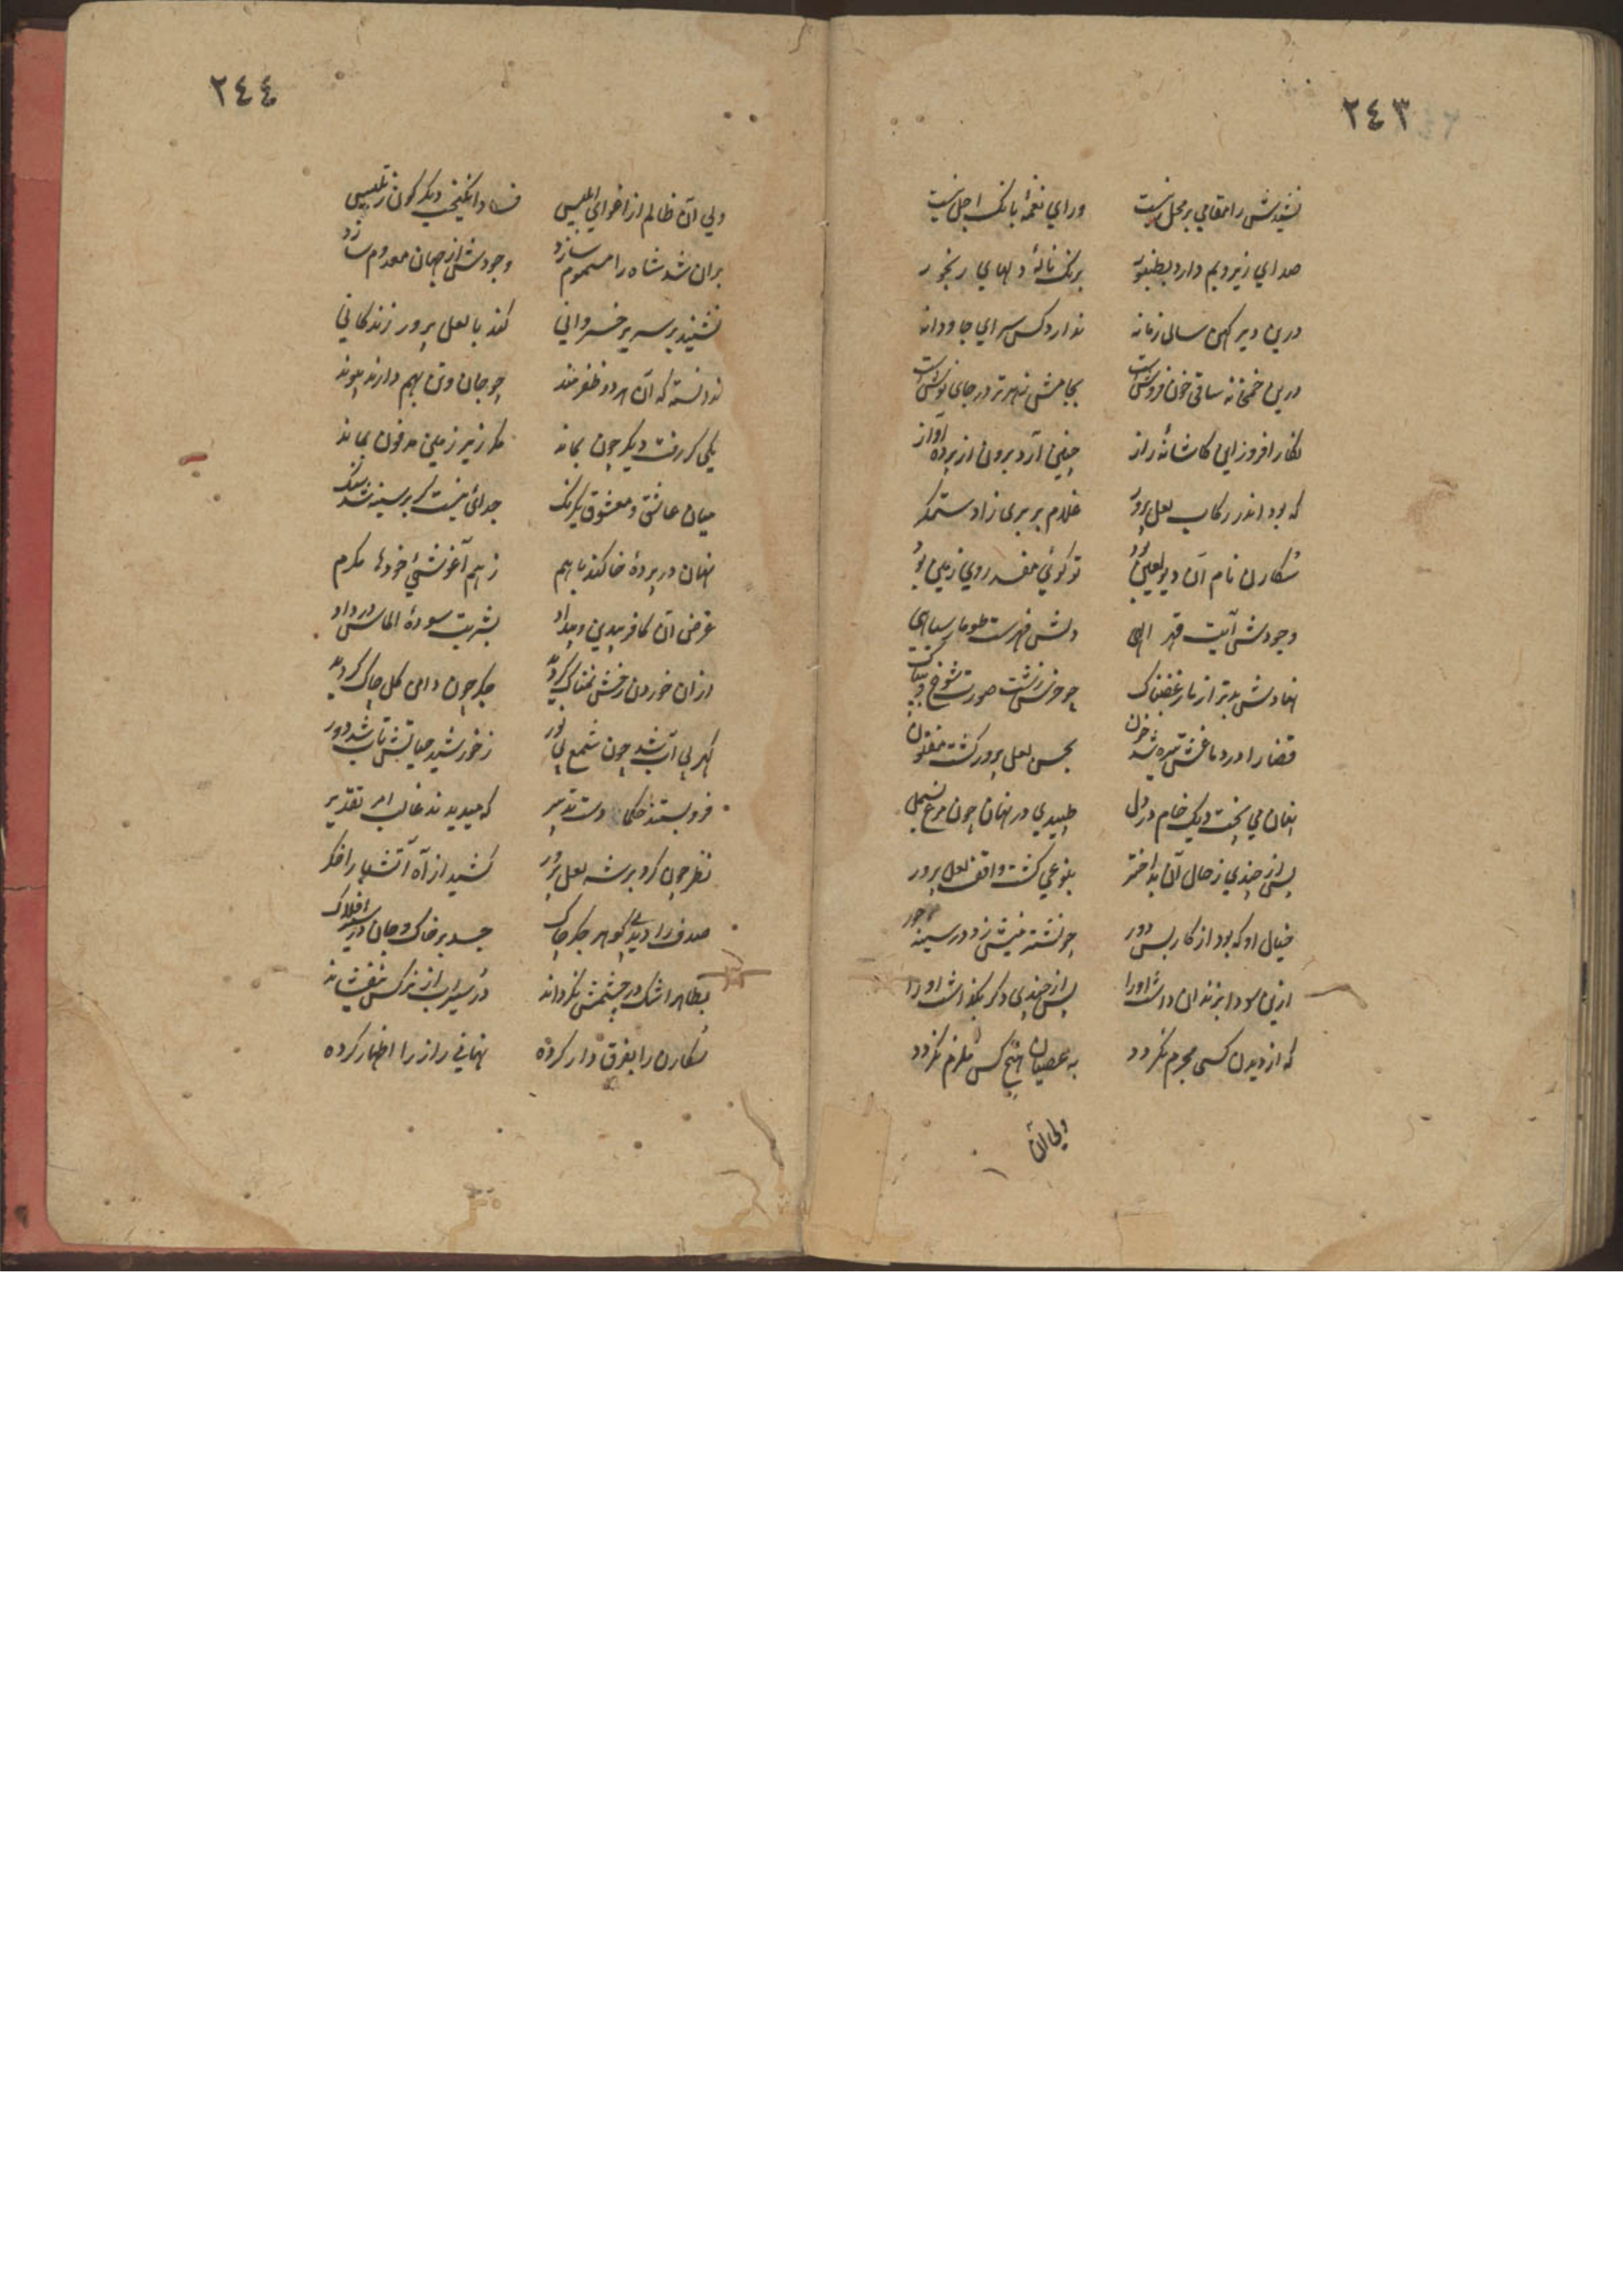 ٢٤٣
نشیدش را مقامی بر محل نیست ورای نغمهٔ بانک اجل نیست
صدای زیر و بم دارد بطنبور برنک نالهٔ دلهای رنجور
درین دیر کهن سال زمانه ندارد کس سرای جاودانه
درین خمخانه ساقی خون فروش است بجامش زهر تر در جای نوش است
نکار افروز این کاشانه راز چنین آرد برون از پرده آواز
که بود اندر رکاب لعل پرور غلام بربری زاد ستمکر
شکارن نام آن دیو لعین بود تو کوئی مفسد روی زمین بود
وجودش آیت قهر الهی دلش فهرست طومار سیاهی
نهادش بدتر از مار غضبناک چو خرس زشت صورت شوخ و بیباک
قضا را در دماغش تیره شد خون بحسن لعل پرور کشت مفتون
نهان می پخت دیک خام در دل طپیدی در نهان چون مرغ بسمل
پس از چندی ز حال آن بد اختر بنوعی کشت واقف لعل پرور
خیال او که بود از کار بس دور چو نشتر نیش زد در سینه
ازین سودا بزندان داشت او را پس از چندی دکر بکذاشت او را
که از دیدن کسی مجرم نکردد به عصیان هیچ کس ملزم نکردد
ولی آن
٢٤٤
ولی آن ظالم از اغوای ابلیس فساد انکیخت دیکر کون ز تلبیس
بران شد شاه را مسموم سازد وجودش از جهان معدوم سازد
نشیند بر سریر خسروانی کند با لعل پرور زندکانی
ندانسته که آن هر دو ظفرمند چو جان و تن بهم دارند پیوند
یکی کر رفت دیکر چون بماند مکر زیر زمین مدفون بماند
میان عاشق و معشوق یکرنک جدائی نیست کر بر سینه شد سنک
نهان در پردهٔ خاکند با هم ز هم آغوشئ خودها مکرم
غرض آن کافر بیدین و بیداد بشربت سودهٔ الماس در داد
ازان خوردن رخش نمناک کردید جکر چون دامن کل چاک کردید
کهر بی آب شد چون شمع بی نور ز خورشید حیاتش تاب شد دور
فرو بستند حکما دست تدبیر که میدیدند غالب امر تقدیر
نظر چون کرد بر شه لعل پرور کشید از آه آتشبار اخکر
صدف را دید بی کوهر جکر چاک جسد بر خاک و جان در سیر افلاک
بظاهر اشک در چشمش نکرداند در سیراب از نرکس نیفشاند
شکارن را بفرق دار کرده نهانی راز را اظهار کرده